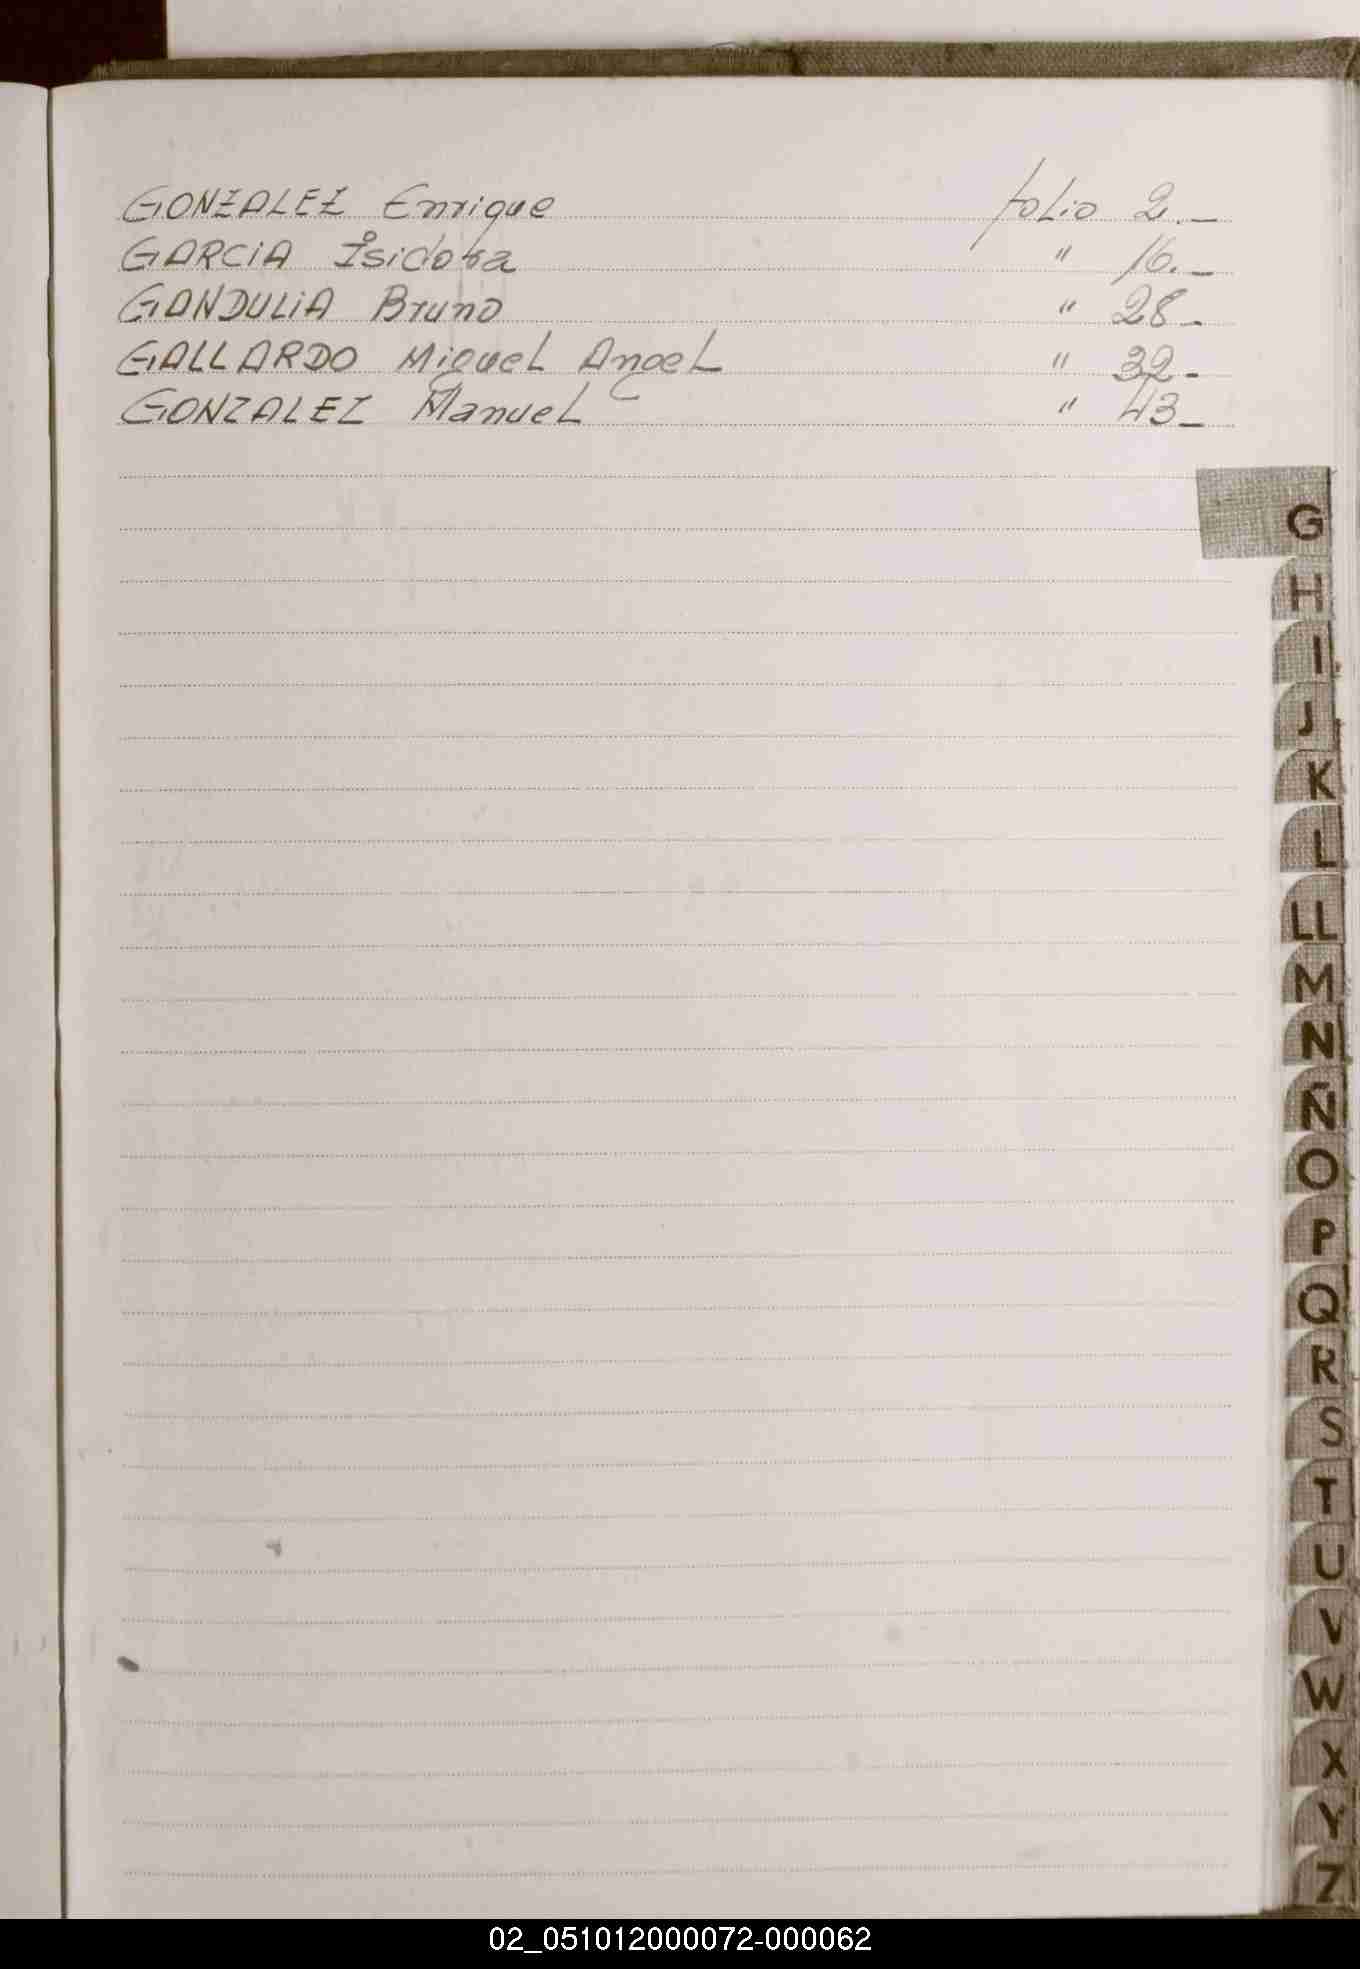 GONZALEZ Enrique folio 2.-
GARCIA Isidora " 16.-
GANDULIA Bruno " 28-
GALLARDO Miguel Angel " 32-
GONZALEZ Manuel " 43-
G
H
I
J
K
L
LL
M
N
Ñ
O
P
Q
R
S
T
U
V
W
X
Y
Z
02_051012000072-000062